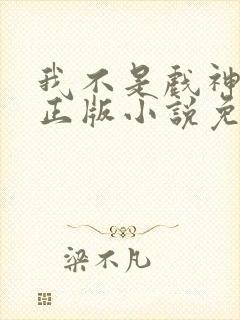 我不是戲神
正版小說免
梁不凡